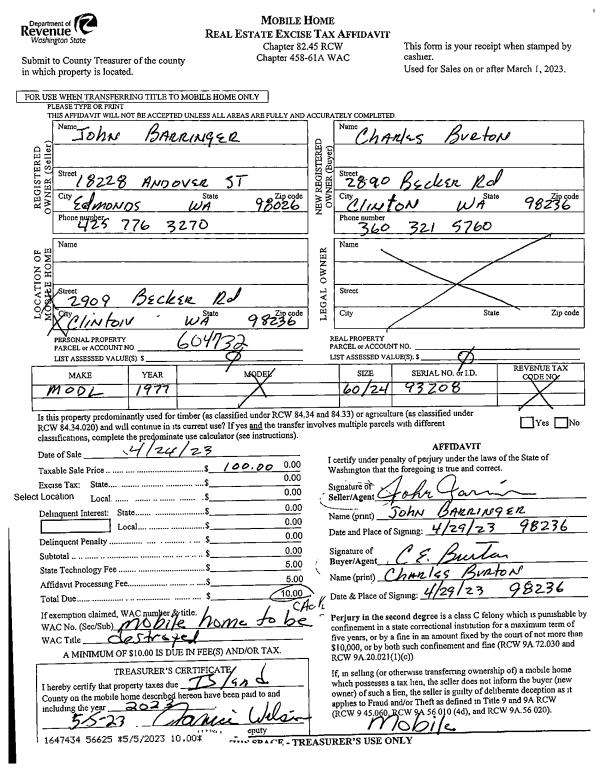 Department of
Revenue
Washington State
Submit to County Treasurer of the county
in which property is located.
MOBILE HOME
REAL ESTATE EXCISE TAX AFFIDAVIT
Chapter 82.45 RCW
Chapter 458-61A WAC
This form is your receipt when stamped by
cashier.
Used for Sales on or after March 1, 2023.
FOR USE WHEN TRANSFERRING TITLE TO MOBILE HOME ONLY
PLEASE TYPE OR PRINT
THIS AFFIDAVIT WILL NOT BE ACCEPTED UNLESS ALL AREAS ARE FULLY AND ACCURATELY COMPLETED
REGISTERED
OWNER (Seller)
Name John BARRINGER
Street 18228 ANDOVER ST
City Edmonds State WA Zip code 98026
Phone number 425 776 3270
NEW REGISTERED
OWNER (Buyer)
Name Charles Burton
Street 2890 Becker Rd
City CLINTON State WA Zip code 98236
Phone number 360 321 5760
LOCATION OF
MOBILE HOME
Name
Street 2909 Becker Rd
City Clinton State WA Zip code 98236
LEGAL OWNER
Name
Street
City State Zip code
PERSONAL PROPERTY
PARCEL or ACCOUNT NO. 604732
LIST ASSESSED VALUE(S) $ 0
REAL PROPERTY
PARCEL or ACCOUNT NO.
LIST ASSESSED VALUE(S) $ 0
MAKE YEAR MODEL SIZE SERIAL NO. or I.D. REVENUE TAX CODE NO.
MODL 1977 60/24 93208
Is this property predominantly used for timber (as classified under RCW 84.34 and 84.33) or agriculture (as classified under
RCW 84.34.020) and will continue in its current use? If yes and the transfer involves multiple parcels with different
classifications, complete the predominate use calculator (see instructions).
Yes No
Date of Sale 4/24/23
Taxable Sale Price $ 100.00 0.00
Excise Tax: State $ 0.00
Select Location Local $ 0.00
Delinquent Interest: State $ 0.00
Local $ 0.00
Delinquent Penalty $ 0.00
Subtotal $ 0.00
State Technology Fee $ 5.00
Affidavit Processing Fee $ 5.00
Total Due $ 10.00
If exemption claimed, WAC number & title.
WAC No. (Sec/Sub) mobile home to be
WAC Title destroyed
A MINIMUM OF $10.00 IS DUE IN FEE(S) AND/OR TAX.
TREASURER'S CERTIFICATE
I hereby certify that property taxes due Island
County on the mobile home described hereon have been paid to and
including the year 2023
5-5-23
eputy
1647434 56625 *5/5/2023 10.00*
AFFIDAVIT
I certify under penalty of perjury under the laws of the State of
Washington that the foregoing is true and correct.
Signature of
Seller/Agent
Name (print) JOHN BARRINGER
Date and Place of Signing: 4/29/23 98236
Signature of
Buyer/Agent C.E. Burton
Name (print) Charles Burton
Date & Place of Signing: 4/29/23 98236
Perjury in the second degree is a class C felony which is punishable by
confinement in a state correctional institution for a maximum term of
five years, or by a fine in an amount fixed by the court of not more than
$10,000, or by both such confinement and fine (RCW 9A.72.030 and
RCW 9A.20.021(1)(c)).
If, in selling (or otherwise transferring ownership of) a mobile home
which possesses a tax lien, the seller does not inform the buyer (new
owner) of such a lien, the seller is guilty of deliberate deception as it
applies to Fraud and/or Theft as defined in Title 9 and 9A RCW
(RCW 9 45.060, RCW 9A 56 010 (4d), and RCW 9A.56 020).
Mobile
SPACE - TREASURER'S USE ONLY